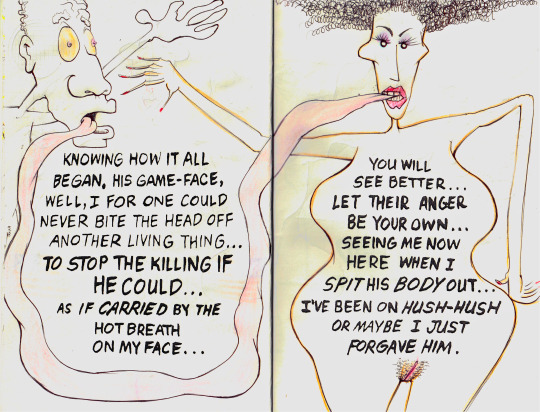 KNOWING HOW IT ALL
BEGAN, HIS GAME-FACE,
WELL, I FOR ONE COULD
NEVER BITE THE HEAD OFF
ANOTHER LIVING THING...
TO STOP THE KILLING IF
HE COULD...
AS IF CARRIED BY THE
HOT BREATH
ON MY FACE...
YOU WILL
SEE BETTER...
LET THEIR ANGER
BE YOUR OWN...
SEEING ME NOW
HERE WHEN I
SPIT HIS BODY OUT...
I'VE BEEN ON HUSH-HUSH
OR MAYBE I JUST
FORGAVE HIM.